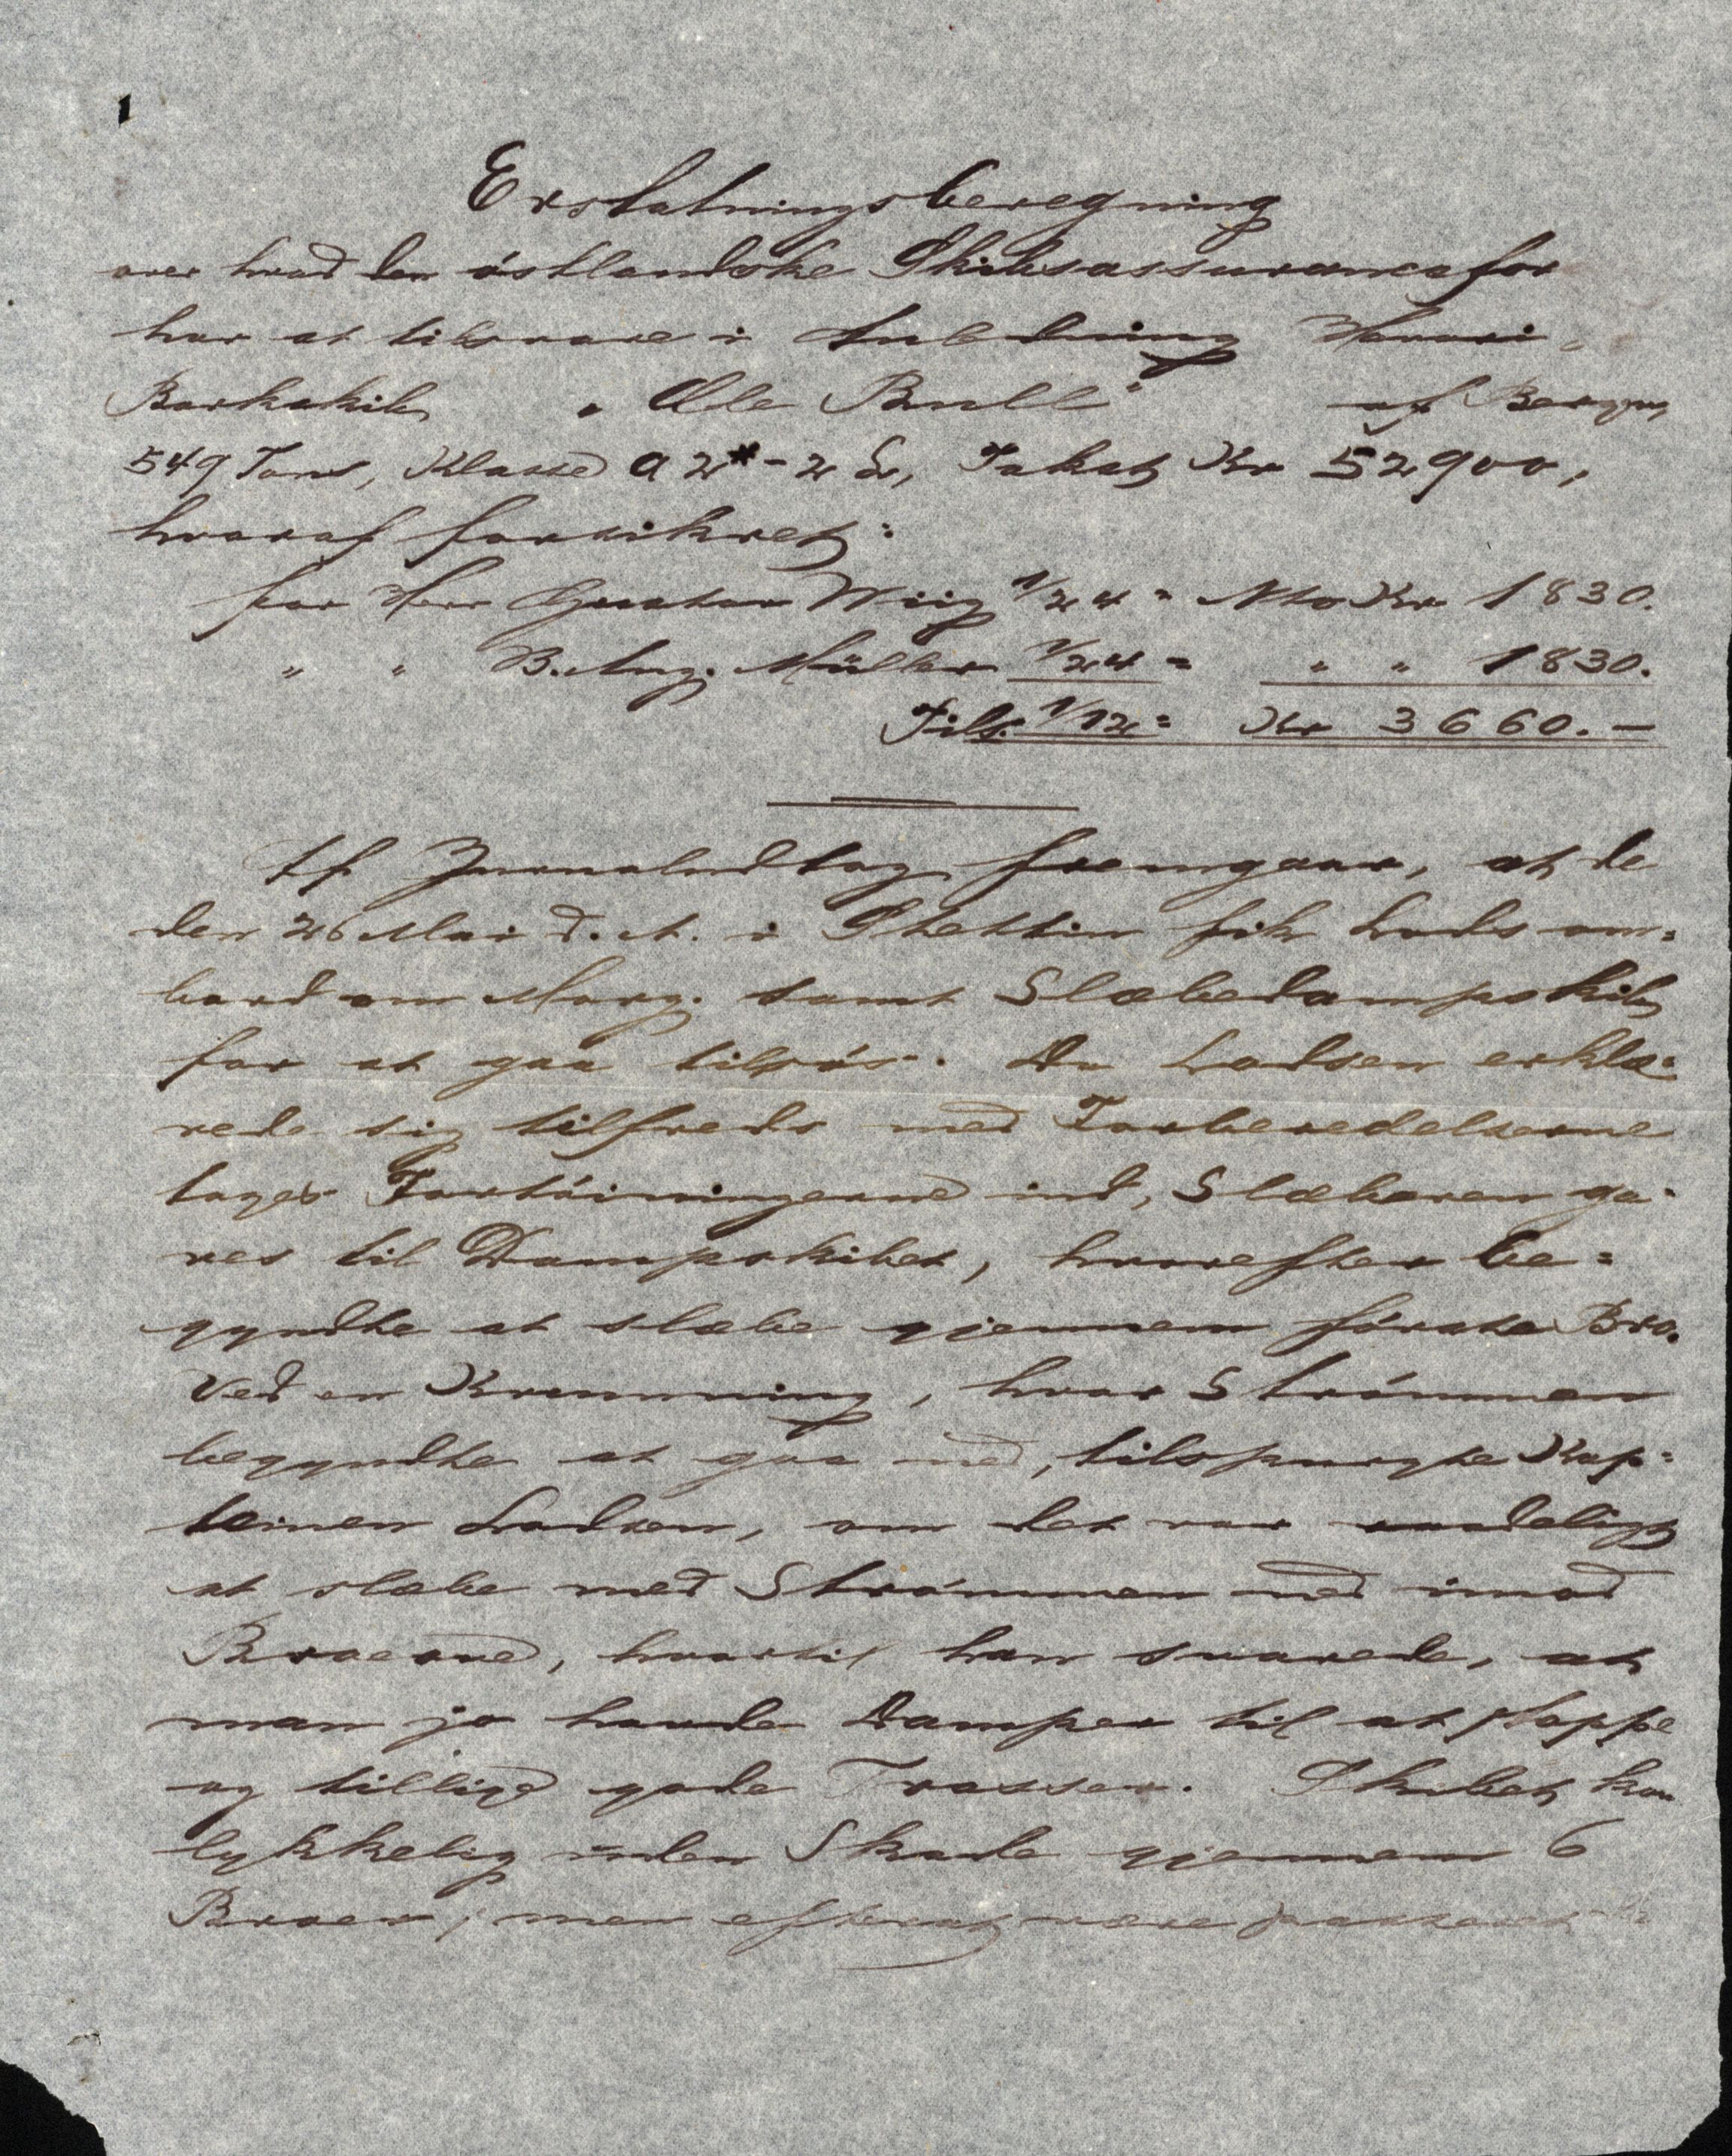 Erstatningsberegning
over hvad den östlandske Skibsassurancefor
har at tilsvare i Anledning Havari
Barkskib "Olle Bull" af Bergen
549 Tons, Klasse A 2* - 2 Takst Kr 52900,
hvoraf forsikret:
for Herr Gustav Wiig 1/24 = Nto Kr 1830.
" " B. Aug. Müller 1/24 = " " 1830.
Tils. 1/12 = Kr 3660. —
Af Journaludtog fremgaar, at de
den 26 Mai d. A. i Stettin fik Lods om=
bord om Morg. samt Slæbedampskib
for at gaa tilsös. Da Lodsen erklæ=
rede sig tilfreds med Forberedelserne
toges Fortöiningerne ind, Slæberen ga=
ves til Dampskibet, hvorefter be=
gyndte at slæbe gjennem förste Bro.
Ved en Krumning, hvor Strömmen
begyndte at gaa ned, tilspurgte Kap=
teinen Lodsen, om det var raadeligt
at slæbe med Strömmen ned imod
Broerne, hvortil han svarede, at
man jo havde Damper til at stoppe
og tillige gode Trosser. Skibet kom
lykkelig uden Skade gjennem 6
Broer, men efterat være passeret